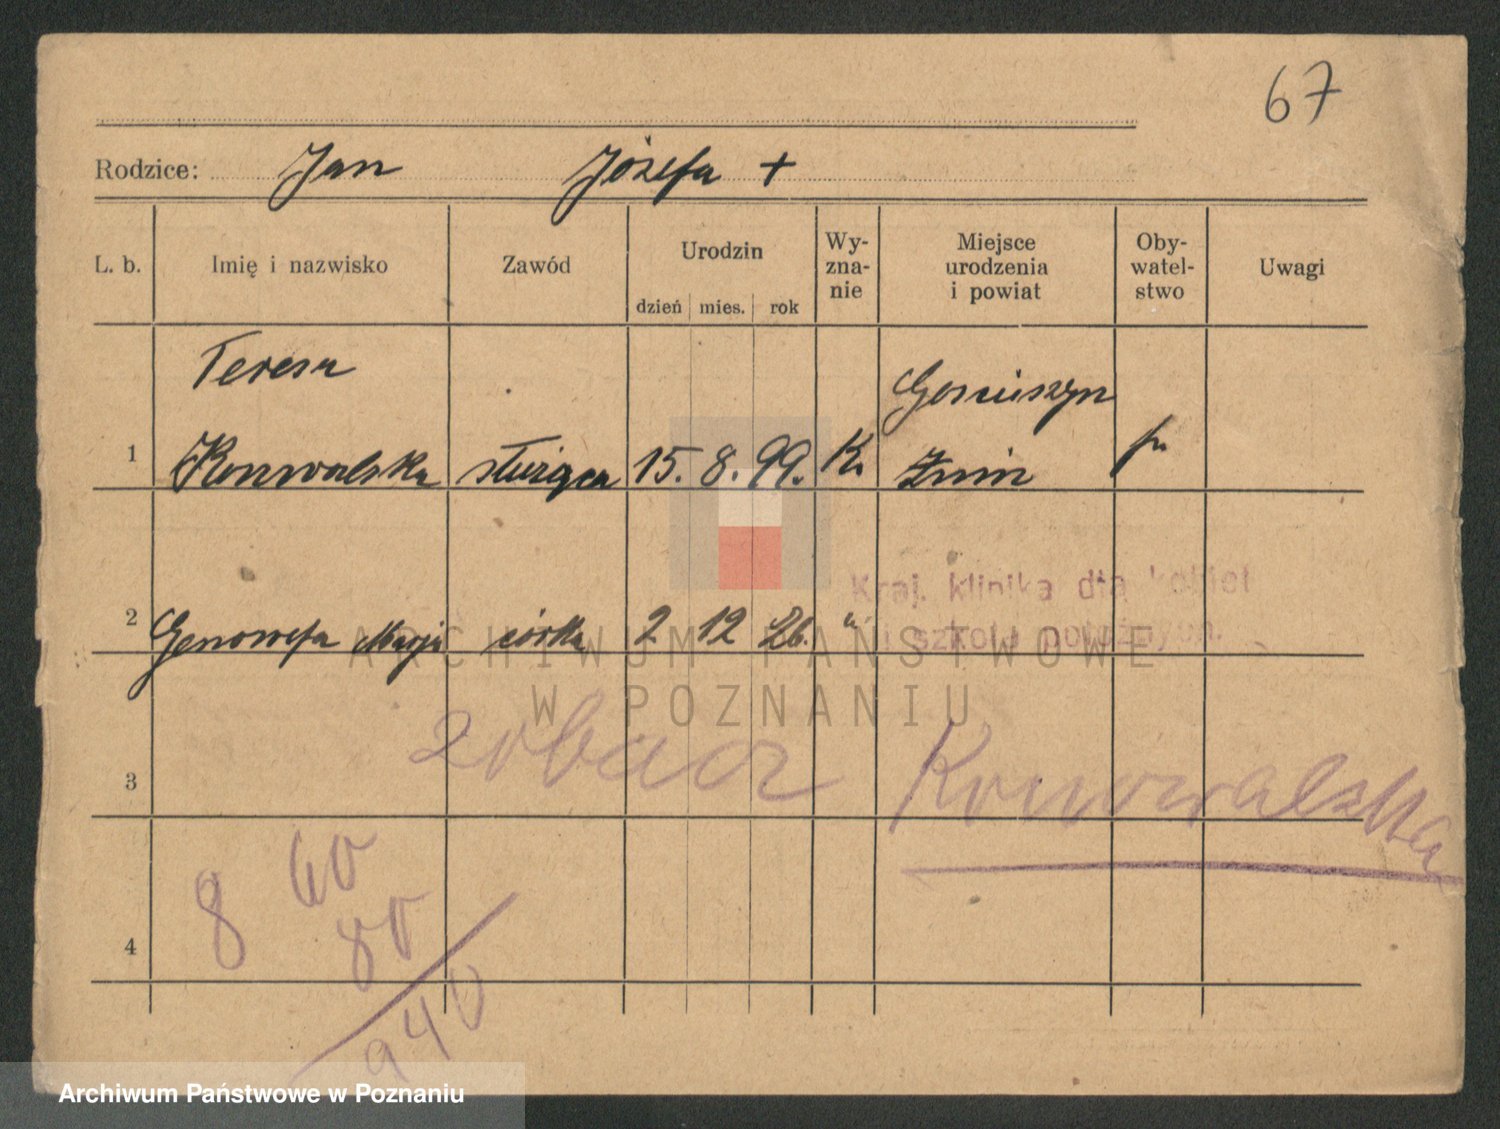 67
Rodzice: Jan Józefa +
L. b. Imię i nazwisko Zawód Urodzin dzień mies. rok Wy-zna-nie Miejsce urodzenia i powiat Oby-watel-stwo Uwagi
Teresa
1 Konwalska służąca 15. 8. 99. K. Gosciuszyn Żnin p.
Kraj. klinika dla kobiet
i szkoła położnych
2 Genowefa Marja córka 2 12 26. "
ARCHIWUM PAŃSTWOWE
W POZNANIU
3 zobacz Konowalska
8 60
80
4
940
Archiwum Państwowe w Poznaniu